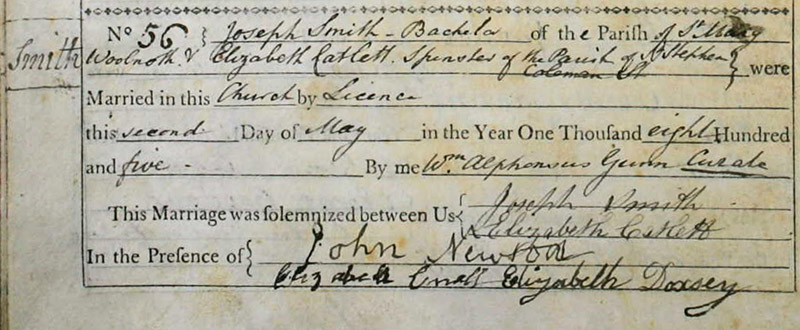 Smith
No 56 { Joseph Smith - Bachelor of the Parish of St Mary
Woolnoth & Elizabeth Catlett Spinster of the Parish of St Stephen } were
Coleman St
Married in this Church by Licence
this second Day of May in the Year One Thouſand eight Hundred
and five - By me Wm Alphonsus Gunn Curate
This Marriage was ſolemnized between Us { Joseph Smith
Elizabeth Catlett
In the Preſence of { John Newton
Elizabeth Elizabeth Doxsey